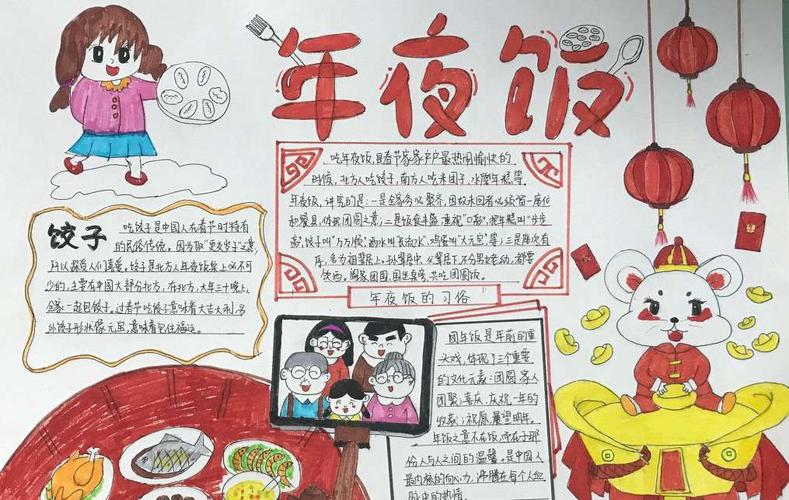 年夜饭
吃年夜饭,是春节家家户户最热闹愉快的
时候,北方人吃饺子,南方人吃米团子,水磨年糕等。
年夜饭,讲究的是:一是全家务必聚齐,因故未回者必须留一座位
和餐具,体现团圆之意;二是饭食丰盛,重视“口彩”,把年糕叫“步步
高”,饺子叫“万万顺”,酒水叫“长流水”,鸡蛋叫“大元宝”等;三是座次有
序,多为祖辈居上,孙辈居中,父辈居下,不分男女老幼,都要
饮酒。阖家团圆,国年,共吃团圆饭。
年夜饭的习俗
饺子
吃饺子是中国人在春节时特有
的民俗传统。因为取“更交岁子”之意,
所以深受人们喜爱。饺子是北方人年夜饭桌上必不可
少的,主要在中国大部分北方,在北方,大年三十晚上,
全家一起包饺子。过春节吃饺子意味着大吉大利,另
外饺子形状像元宝,意味着包住福运。
团年饭是年前的重
头戏,体现了三个重要
的文化元素:团圆,家人
团聚;喜庆,庆祝一年的
收获;祝愿,展望明年。
年饭之意不在饭,而在于那
份人与人之间的温馨,是中国人
最内核的向心力,沸腾在每个人血
脉中的热情。